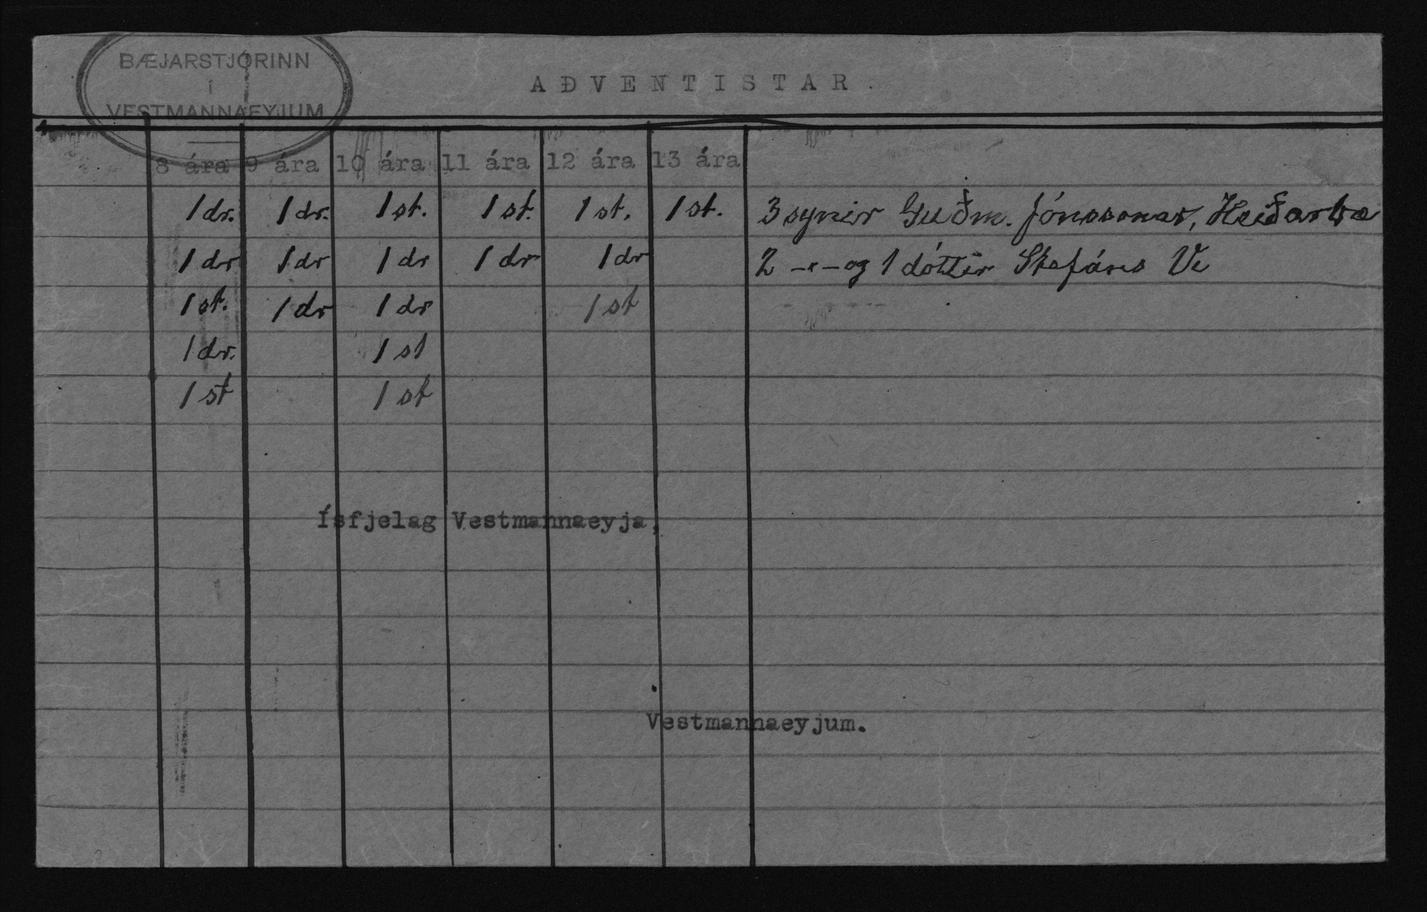 BÆJARSTJÓRINN
Í
VESTMANNAEYJUM
AÐVENTISTAR.
8 ára 9 ára 10 ára 11 ára 12 ára 13 ára
1 dr. 1 dr. 1 st. 1 st. 1 st. 1 st. 3 synir Guðm. Jónssonar, Heiðarbæ
1 dr 1 dr 1 dr 1 dr 1 dr 2 -"- og 1 dóttir Stefáns Ve
1 st. 1 dr 1 dr 1 st
1 dr. 1 st
1 st 1 st
Ísfjelag Vestmannaeyja,
Vestmannaeyjum.